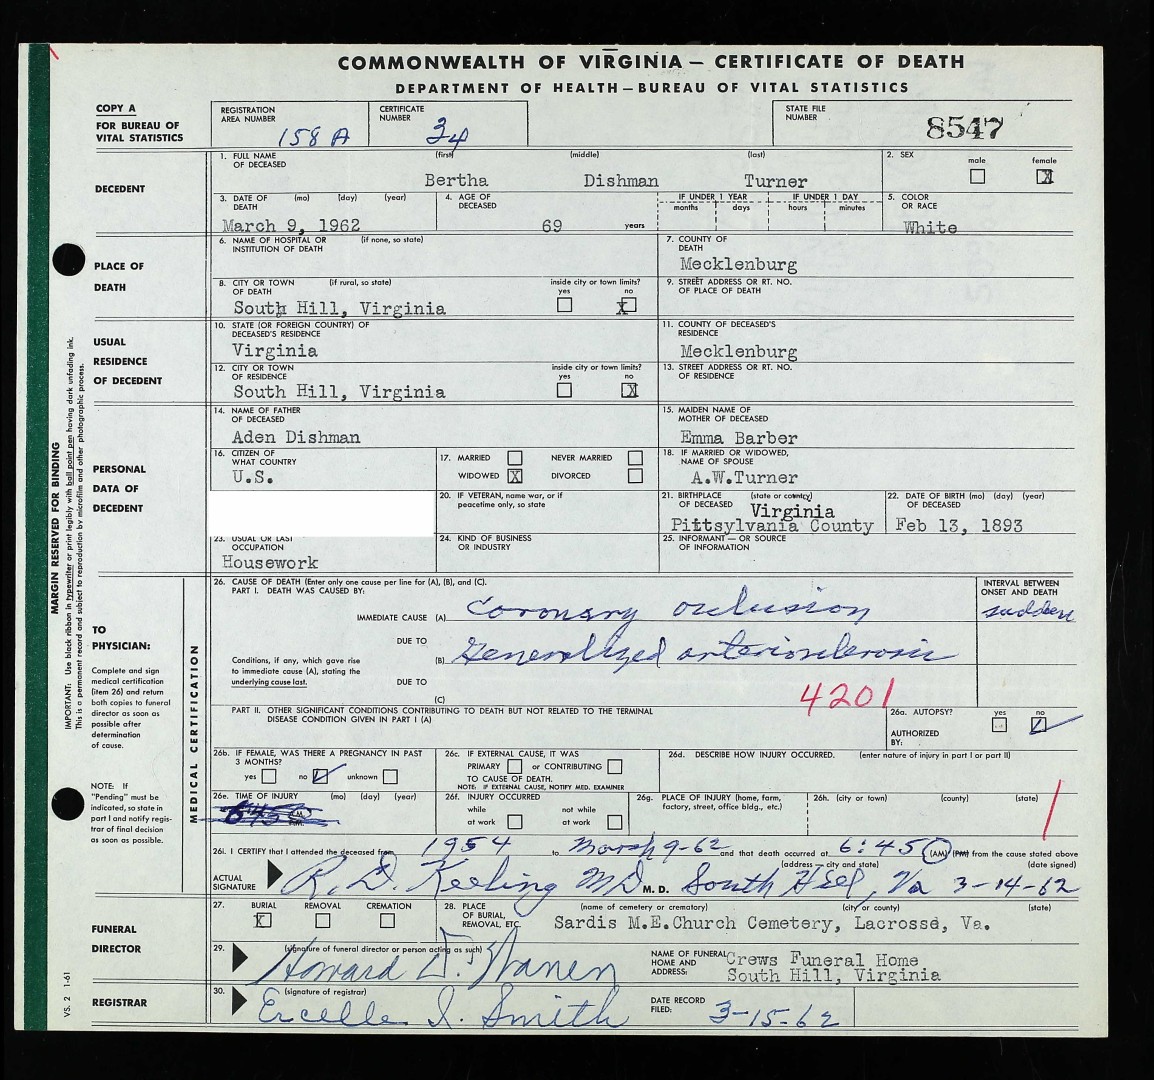 COMMONWEALTH OF VIRGINIA — CERTIFICATE OF DEATH
DEPARTMENT OF HEALTH — BUREAU OF VITAL STATISTICS
COPY A
FOR BUREAU OF
VITAL STATISTICS
REGISTRATION
AREA NUMBER 158 A
CERTIFICATE
NUMBER 34
STATE FILE
NUMBER 8547
DECEDENT
1. FULL NAME OF DECEASED (first) (middle) (last)
Bertha Dishman Turner
2. SEX male female X
3. DATE OF DEATH (mo) (day) (year)
March 9, 1962
4. AGE OF DECEASED
69 years
IF UNDER 1 YEAR months days
IF UNDER 1 DAY hours minutes
5. COLOR OR RACE
White
PLACE OF
DEATH
6. NAME OF HOSPITAL OR INSTITUTION OF DEATH (if none, so state)
7. COUNTY OF DEATH
Mecklenburg
8. CITY OR TOWN OF DEATH (if rural, so state)
South Hill, Virginia
inside city or town limits? yes no X
9. STREET ADDRESS OR RT. NO. OF PLACE OF DEATH
USUAL
RESIDENCE
OF DECEDENT
10. STATE (OR FOREIGN COUNTRY) OF DECEASED'S RESIDENCE
Virginia
11. COUNTY OF DECEASED'S RESIDENCE
Mecklenburg
12. CITY OR TOWN OF RESIDENCE
South Hill, Virginia
inside city or town limits? yes no X
13. STREET ADDRESS OR RT. NO. OF RESIDENCE
PERSONAL
DATA OF
DECEDENT
14. NAME OF FATHER OF DECEASED
Aden Dishman
15. MAIDEN NAME OF MOTHER OF DECEASED
Emma Barber
16. CITIZEN OF WHAT COUNTRY
U.S.
17. MARRIED NEVER MARRIED
WIDOWED X DIVORCED
18. IF MARRIED OR WIDOWED, NAME OF SPOUSE
A.W.Turner
20. IF VETERAN, name war, or if peacetime only, so state
21. BIRTHPLACE OF DECEASED (state or county)
Virginia
Pittsylvania County
22. DATE OF BIRTH (mo) (day) (year) OF DECEASED
Feb 13, 1893
23. USUAL OR LAST OCCUPATION
Housework
24. KIND OF BUSINESS OR INDUSTRY
25. INFORMANT — OR SOURCE OF INFORMATION
MARGIN RESERVED FOR BINDING
IMPORTANT: Use black ribbon in typewriter or print legibly with ball point pen having dark unfading ink.
This is a permanent record and subject to reproduction by microfilm and other photographic process.
TO
PHYSICIAN:
Complete and sign
medical certification
(item 26) and return
both copies to funeral
director as soon as
possible after
determination
of cause.
NOTE: If
"Pending" must be
indicated, so state in
part I and notify regis-
trar of final decision
as soon as possible.
MEDICAL CERTIFICATION
26. CAUSE OF DEATH (Enter only one cause per line for (A), (B), and (C).
PART I. DEATH WAS CAUSED BY:
INTERVAL BETWEEN
ONSET AND DEATH
IMMEDIATE CAUSE (A) Coronary occlusion sudden
DUE TO
(B) Generalized arteriosclerosis
Conditions, if any, which gave rise
to immediate cause (A), stating the
underlying cause last.
DUE TO
(C)
4201
PART II. OTHER SIGNIFICANT CONDITIONS CONTRIBUTING TO DEATH BUT NOT RELATED TO THE TERMINAL
DISEASE CONDITION GIVEN IN PART I (A)
26a. AUTOPSY? yes no
AUTHORIZED
BY:
26b. IF FEMALE, WAS THERE A PREGNANCY IN PAST
3 MONTHS?
yes no unknown
26c. IF EXTERNAL CAUSE, IT WAS
PRIMARY or CONTRIBUTING
TO CAUSE OF DEATH.
NOTE: IF EXTERNAL CAUSE, NOTIFY MED. EXAMINER
26d. DESCRIBE HOW INJURY OCCURRED. (enter nature of injury in part I or part II)
26e. TIME OF INJURY (mo) (day) (year)
26f. INJURY OCCURRED
while at work not while at work
26g. PLACE OF INJURY (home, farm,
factory, street, office bldg., etc.)
26h. (city or town) (county) (state)
26i. I CERTIFY that I attended the deceased from 1954 to March 9-62 and that death occurred at 6:45 (AM) (PM) from the cause stated above
(address — city and state) (date signed)
ACTUAL
SIGNATURE R. D. Keeling MD M. D. South Hill, Va 3-14-62
FUNERAL
DIRECTOR
27. BURIAL X REMOVAL CREMATION
28. PLACE OF BURIAL, REMOVAL, ETC. (name of cemetery or crematory) (city or county) (state)
Sardis M.E.Church Cemetery, Lacrosse, Va.
29. (signature of funeral director or person acting as such)
Howard
NAME OF FUNERAL
HOME AND
ADDRESS:
Crews Funeral Home
South Hill, Virginia
REGISTRAR
30. (signature of registrar)
Ercelle I. Smith
DATE RECORD
FILED: 3-15-62
VS. 2 1-61